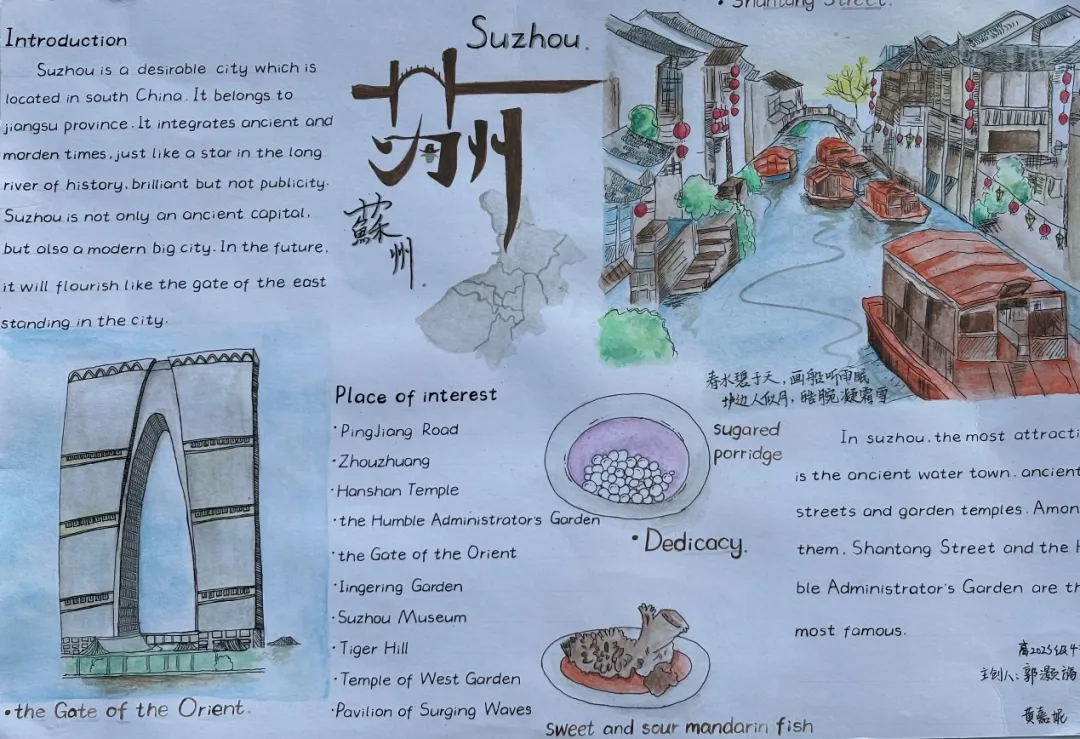 Suzhou.
苏州
蘇州.
Introduction
Suzhou is a desirable city which is
located in south China. It belongs to
jiangsu province. It integrates ancient and
morden times, just like a star in the long
river of history, brilliant but not publicity.
Suzhou is not only an ancient capital,
but also a modern big city. In the future,
it will flourish like the gate of the east
standing in the city.
• the Gate of the Orient.
Place of interest
·PingJiang Road
·Zhouzhuang
·Hanshan Temple
·the Humble Administrator's Garden
·the Gate of the Orient
·lingering Garden
·Suzhou Museum
·Tiger Hill
·Temple of West Garden
·Pavilion of Surging Waves
sugared
porridge
• Dedicacy.
sweet and sour mandarin fish
• Shantang Street.
春水碧于天，画船听雨眠
垆边人似月，皓腕凝霜雪
In suzhou, the most attracti
is the ancient water town, ancient
streets and garden temples. Amon
them, Shantang Street and the H
ble Administrator's Garden are th
most famous.
高2023级4
主创人：郭灏
黄嘉妮